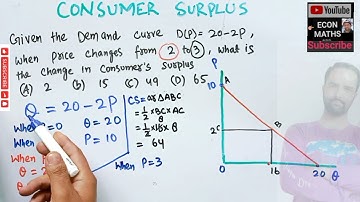 CONSUMER SURPLUS
YouTube
ECON
MATHS
Subscribe
SUBSCRIBE
Given the Demand curve D(P)=20-2P,
when Price changes from 2 to 3, what is
the change in Consumer's Surplus
(A) 2 (B) 15 (C) 49 (D) 65
Q = 20-2P
When P=0 Q=20
When P=10
When P
Q=
CS= ar ΔABC
= 1/2 ×BC×AC
= 1/2 ×16× 8
= 64
When P=3
P
10 A
2C
B
0 16 20 Q